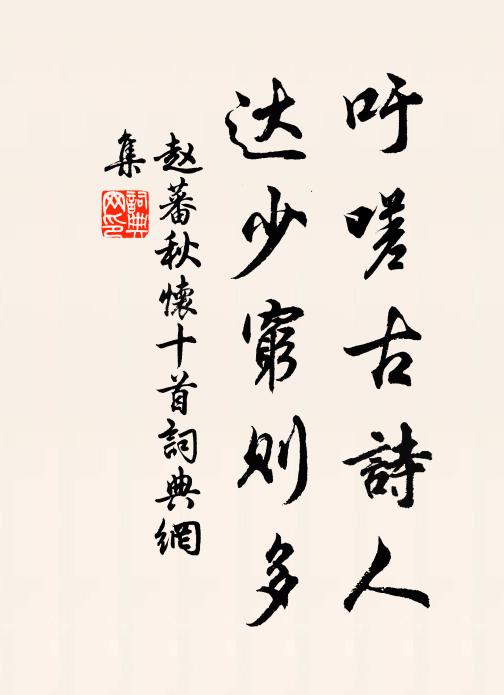 吁嗟古詩人
达少窮则多
赵蕃秋懷十首詞典網
集
詞典
网印